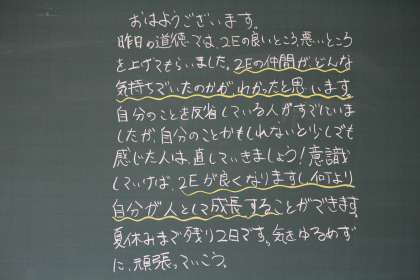 おはようございます。
昨日の道徳では、2Eの良いところ、悪いところ
を上げてもらいました。2Eの仲間が、どんな
気持ちでいたのかが、わかったと思います。
自分のことを反省している人がすでにいま
したが、自分のことかもしれないと少しでも
感じた人は、直していきましょう！意識
していけば、2Eが良くなりますし、何より
自分が人として成長することができます。
夏休みまで残り2日です。気をゆるめず
に、頑張っていこう。